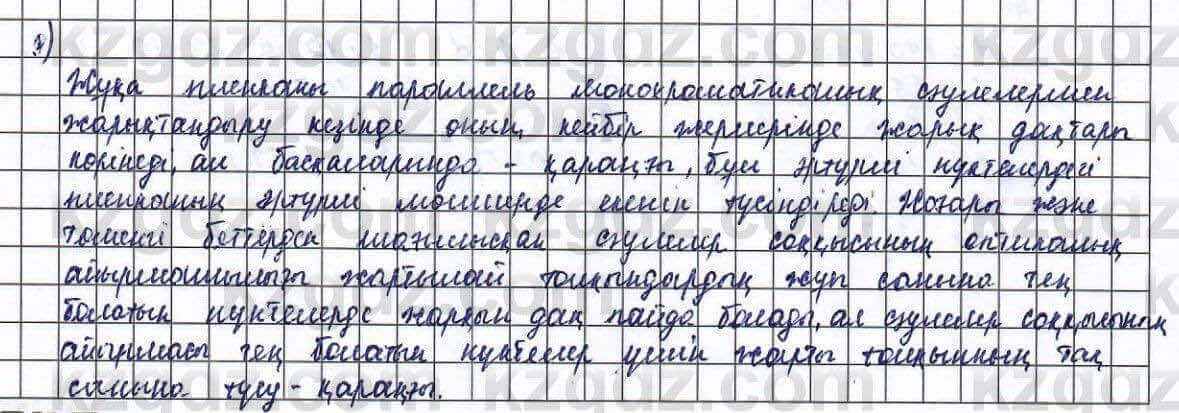 7)
Жұқа пленканы параллель монохроматикалық сәулелермен
жарықтандыру кезінде оның кейбір жерлерінде жарық дақтары
көрінеді, ал басқаларында - қараңғы, бұл әртүрлі нүктелердегі
пленканың әртүрлі мөлшерде екенін түсіндіреді. Жоғары және
төменгі беттерден шағылысқан сәулелер соққысының оптикалық
айырмашылығы жартылай толқындардың жұп санына тең
болатын нүктелерде жарқын дақ пайда болады, ал сәулелер соққысының
айырмасы тең болатын нүктелер үшін жарты толқынның тақ
санына түсу - қараңғы.